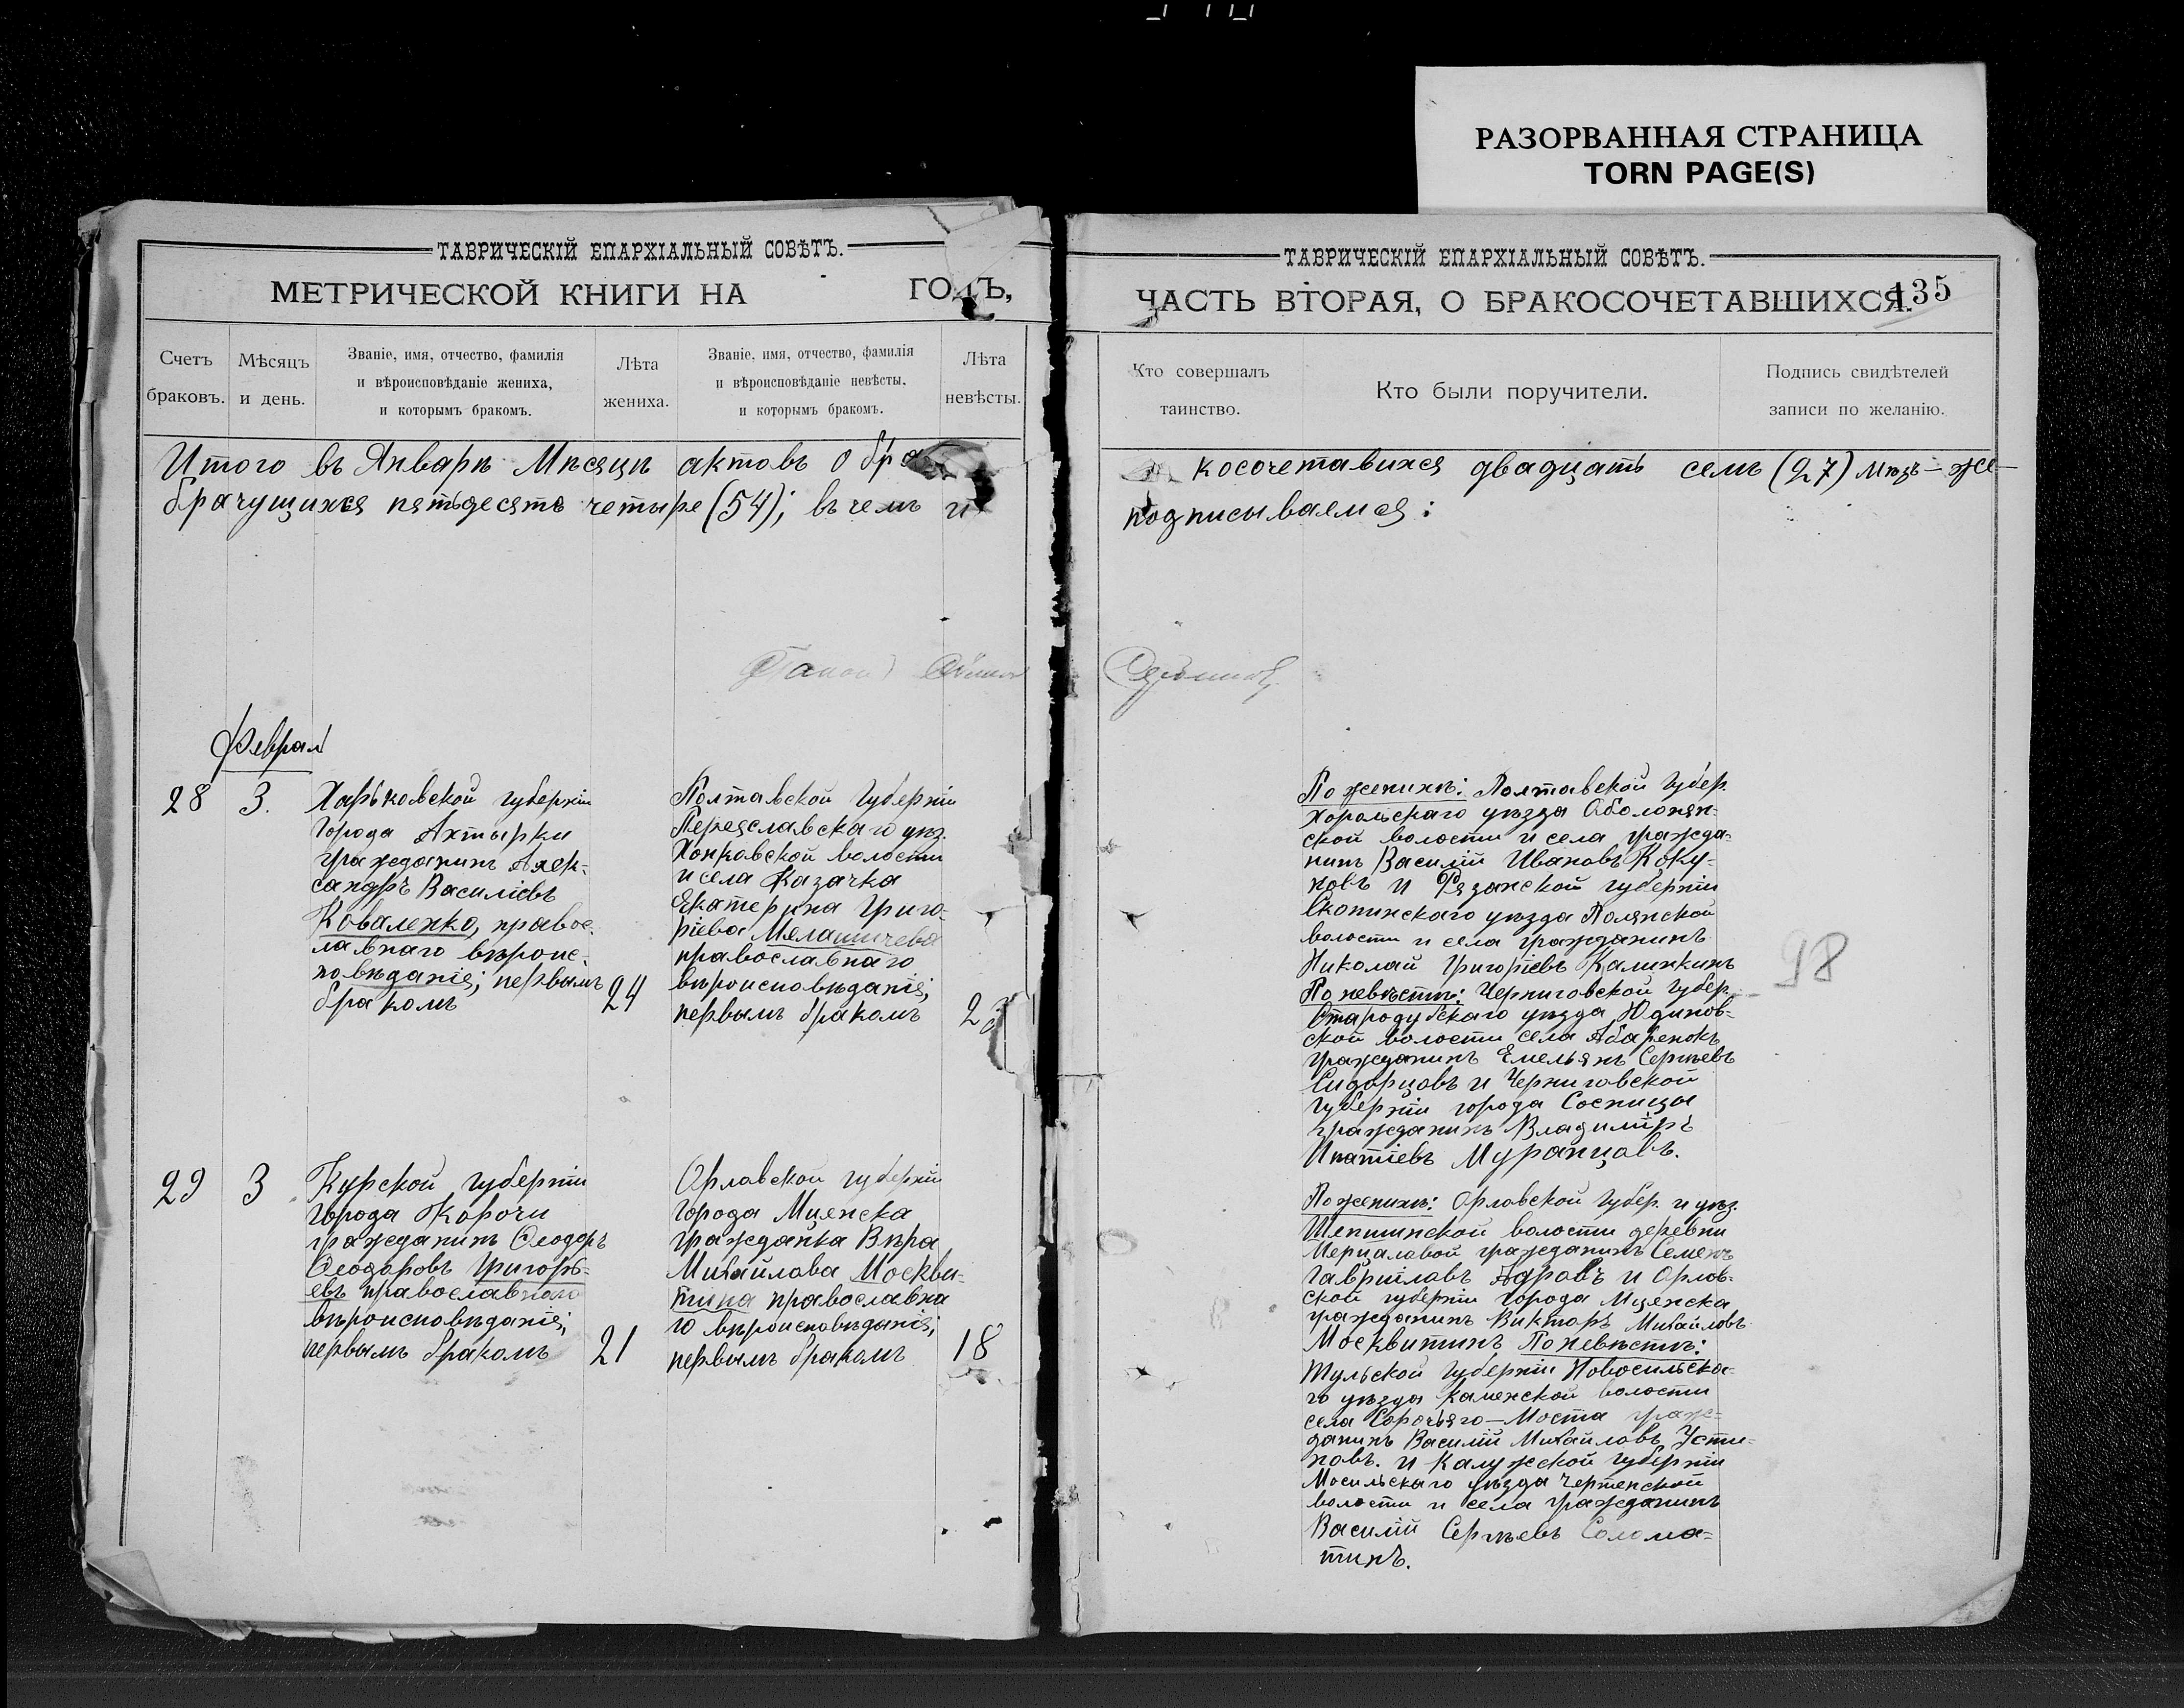 РАЗОРВАННАЯ СТРАНИЦА
TORN PAGE(S)
ТАВРИЧЕСКІЙ ЕПАРХІАЛЬНЫЙ СОВѢТЪ.
МЕТРИЧЕСКОЙ КНИГИ НА ГОДЪ,
Счетъ браковъ.
Мѣсяцъ и день.
Званіе, имя, отчество, фамилія
и вѣроисповѣданіе жениха,
и которымъ бракомъ.
Лѣта жениха.
Званіе, имя, отчество, фамилія
и вѣроисповѣданіе невѣсты,
и которымъ бракомъ.
Лѣта невѣсты.
Итого въ Январѣ Мѣсяцѣ актовъ о бра
брачущихся пятьдесятъ четыре (54); въ чемъ и
Феврал
28
3.
Харьковской губерніи
города Ахтырки
гражданинъ Алек-
сандръ Василіевъ
Коваленко, правос-
лавнаго вѣроис-
повѣданія; первымъ
бракомъ
24
Полтавской губерніи
Переяславскаго уѣз.
волости
и села Казачка
Екатерина Григо-
ріева
православнаго
вѣроисповѣданія;
первымъ бракомъ
29
3
Курской губерніи
города Корочи
гражданинъ Ѳеодоръ
Ѳеодоровъ Григорь-
евъ православнаго
вѣроисповѣданія;
первымъ бракомъ
21
Орловской губерніи
города Мценска
гражданка Вѣра
Михайлова Москви-
тина православна
го вѣроисповѣданія;
первымъ бракомъ
18
ТАВРИЧЕСКІЙ ЕПАРХІАЛЬНЫЙ СОВѢТЪ.
ЧАСТЬ ВТОРАЯ, О БРАКОСОЧЕТАВШИХСЯ.
135
Кто совершалъ таинство.
Кто были поручители.
Подпись свидѣтелей
записи по желанію.
косочетавихся двадцать семь (27)
подписываемся:
По женихѣ: Полтавской губер.
Хорольскаго уѣзда Оболонян-
ской волости и села гражда-
нинъ Василій Ивановъ Коку-
новъ и Рязанской губерніи
Скопинскаго уѣзда Полянской
волости и села гражданинъ
Николай Григоріевъ Калинкинъ
По невѣстѣ: Черниговской губер.
Стародубскаго уѣзда Юдинов-
ской волости села
гражданинъ Емельянъ Сергѣевъ
Сидорцовъ и Черниговской
губерніи города Сосницы
гражданинъ Владиміръ
Ипатіевъ Муранцовъ.
98
По женихѣ: Орловской губер. и уѣз.
волости деревни
Мерцаловой гражданинъ Семенъ
Гавріиловъ и Орлов-
ской губерніи города Мценска
гражданинъ Викторъ Михайловъ
Москвитинъ По невѣстѣ:
Тульской губерніи Новосильска-
го уѣзда Каменской волости
села Сорочьяго-Моста граж-
данинъ Василій Михайловъ Усти-
новъ. и Калужской губерніи
Мосальскаго уѣзда Чертенской
волости и села гражданинъ
Василій Сергѣевъ Солома-
тинъ.